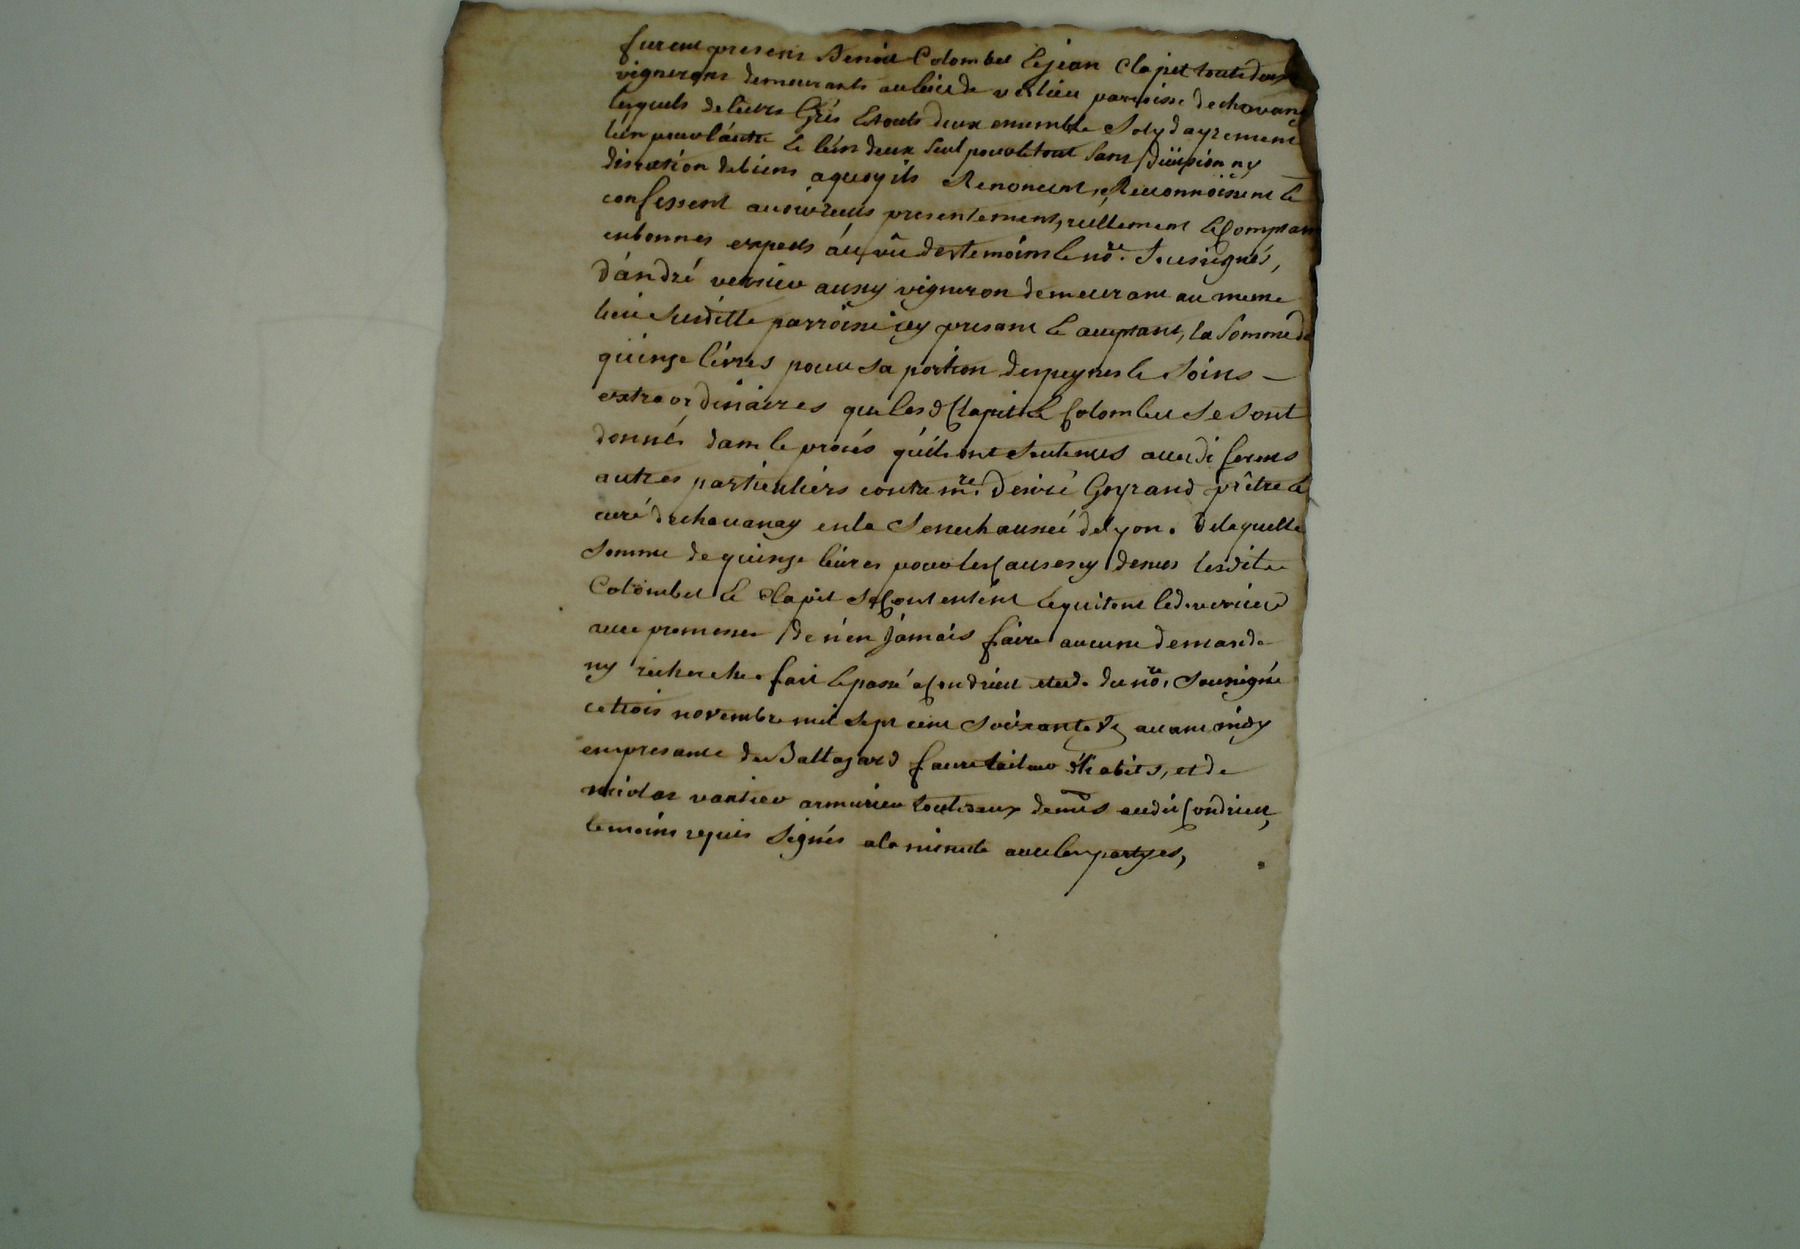 furent presens Benoit Colombet & jean Clapit touts deux
vignerons demeurants au lieu de verlieu paroisse de chavanay
lesquels de leurs Grés & touts deux ensemble Solydayrement
l'un pour l'autre & l'un deux seul pour le tout sans division ny
discution de biens a quoy ils Renoncent, Reconnoissent &
confessent avoir reçus presentement, reellement & Comptant
en bonnes especes au vû des temoins & no.re Soussignés,
d'andré verrier aussy vigneron demeurant au meme
lieu Susditte parroisse icy present & acceptant, la Somme de
quinze livres pour sa portion des peynes & Soins
extraordinaires que les d Clapit & Colombet se sont
donnés dans le procés qu'ils ont soutenus avec di
autres particuliers contre m.re Goyrand prêtre &
curé de chavanay en la Senechaussée de Lyon. de laquelle
Somme de quinze livres pour les causes cy dessus lesdits
Colombet & Clapit se Contentent & quitent led. verrier
avec promesse de n'en jamais faire aucune demande
ny recherche. fait & passé a Condrieu etude du no.re Soussigné
ce trois novembre mil sept cent soixante avant midy
en presence de Baltazard faure tailleur d'habits, et de
nicolas armurier touts deux dem.ts audit Condrieu,
temoins requis signés a la minute avec les partyes,